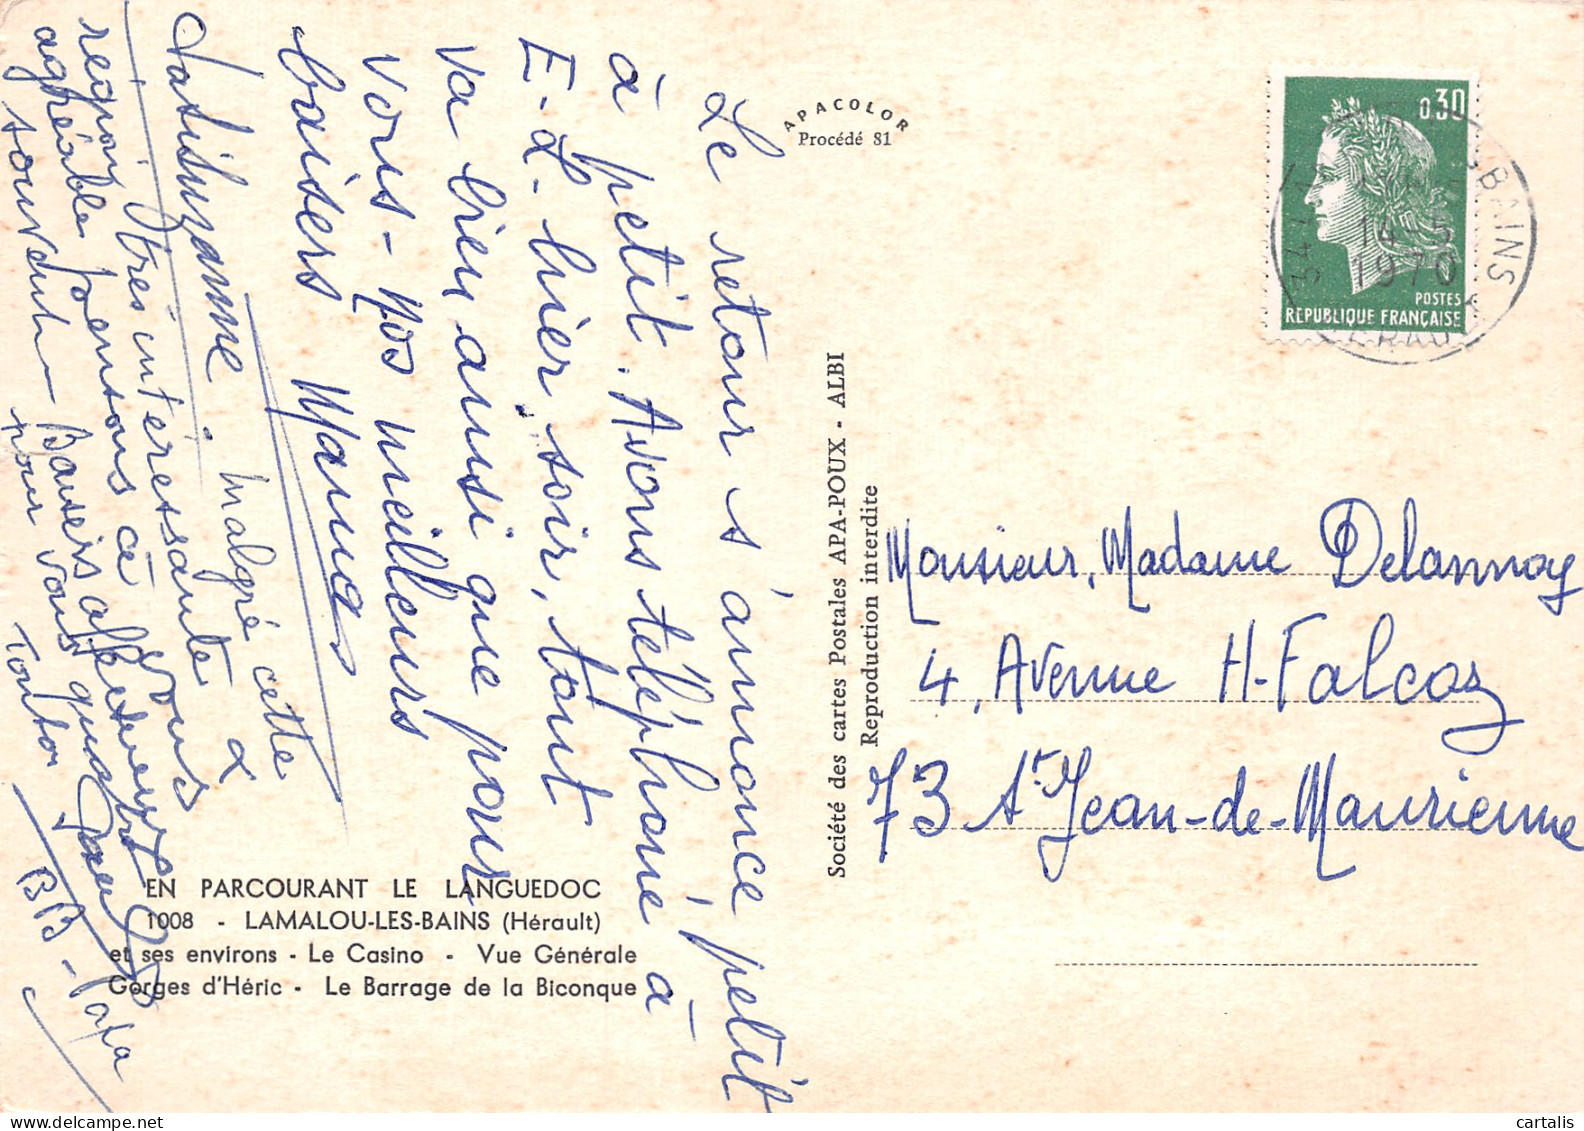 Le retour s'annonce, petit
à petit. Avons téléphoné à
E-L- hier soir, tout
va bien ainsi que pour
vous - Nos meilleurs
baisers Manua
Malgré cette
région très intéressante &
agréable pensons à vous
souvent Baisers affectueux
pour vous
Tonton
BB - Papa
APACOLOR
Procédé 81
Société des cartes Postales APA-POUX - ALBI
Reproduction interdite
0,30
POSTES
REPUBLIQUE FRANÇAISE
BAINS
14-5
1970
Monsieur, Madame Delannoy
4, Avenue H-Falcoz
73 St Jean-de-Maurienne
EN PARCOURANT LE LANGUEDOC
1008 - LAMALOU-LES-BAINS (Hérault)
et ses environs - Le Casino - Vue Générale
Gorges d'Héric - Le Barrage de la Biconque
www.delcampe.net
cartalis